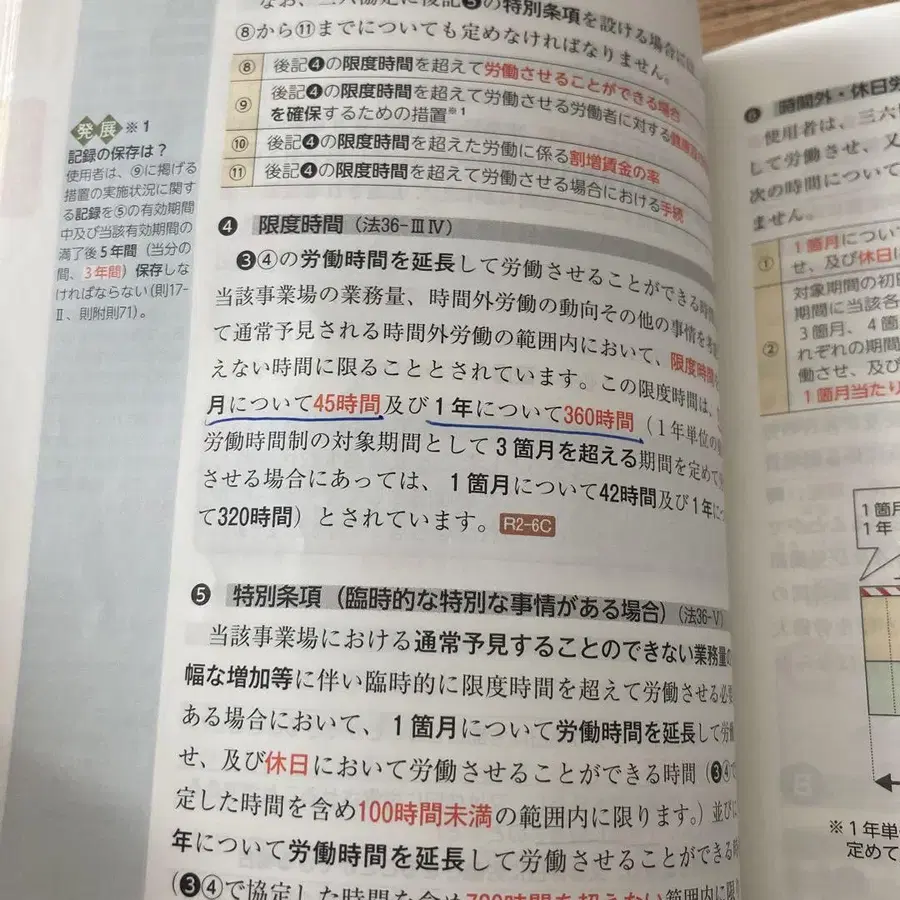 なお、三六協定に後記❺の特別条項を設ける場合に
⑧から⑪までについても定めなければなりません。
⑧ 後記❹の限度時間を超えて労働させることができる場合
⑨ 後記❹の限度時間を超えて労働させる労働者に対する健康
を確保するための措置※1
⑩ 後記❹の限度時間を超えた労働に係る割増賃金の率
⑪ 後記❹の限度時間を超えて労働させる場合における手続
発展 ※1
記録の保存は？
使用者は、⑨に掲げる
措置の実施状況に関す
る記録を⑤の有効期間
中及び当該有効期間の
満了後5年間（当分の
間、3年間）保存しな
ければならない(則17-
Ⅱ、則附則71)。
❹ 限度時間（法36-ⅢⅣ）
❸④の労働時間を延長して労働させることができる時間
当該事業場の業務量、時間外労働の動向その他の事情を考
て通常予見される時間外労働の範囲内において、限度時間
えない時間に限ることとされています。この限度時間は、
月について45時間及び1年について360時間（1年単位の
労働時間制の対象期間として3箇月を超える期間を定めて
させる場合にあっては、1箇月について42時間及び1年に
て320時間）とされています。 R2-6C
❺ 特別条項（臨時的な特別な事情がある場合）（法36-Ⅴ）
当該事業場における通常予見することのできない業務量
幅な増加等に伴い臨時的に限度時間を超えて労働させる必
ある場合において、1箇月について労働時間を延長して労
せ、及び休日において労働させることができる時間（❸④
定した時間を含め100時間未満の範囲内に限ります。）並びに
年について労働時間を延長して労働させることができる
（❸④で協定した時間を含め720時間を超えない範囲内に限
❻ 時間外・休日労
使用者は、三六
して労働させ、又
次の時間について
ません。
① 1箇月につい
せ、及び休日に
② 対象期間の初日
期間に当該各
3箇月、4箇
れぞれの期間
働させ、及び
1箇月当たり
1箇月
1年
※1年単
定めて